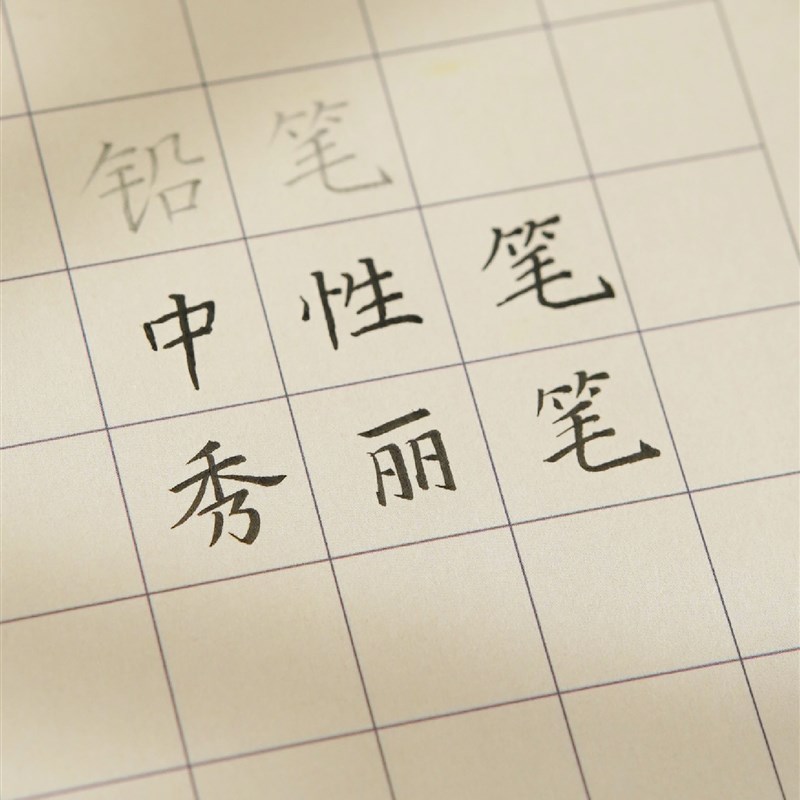 铅笔
中性笔
秀丽笔